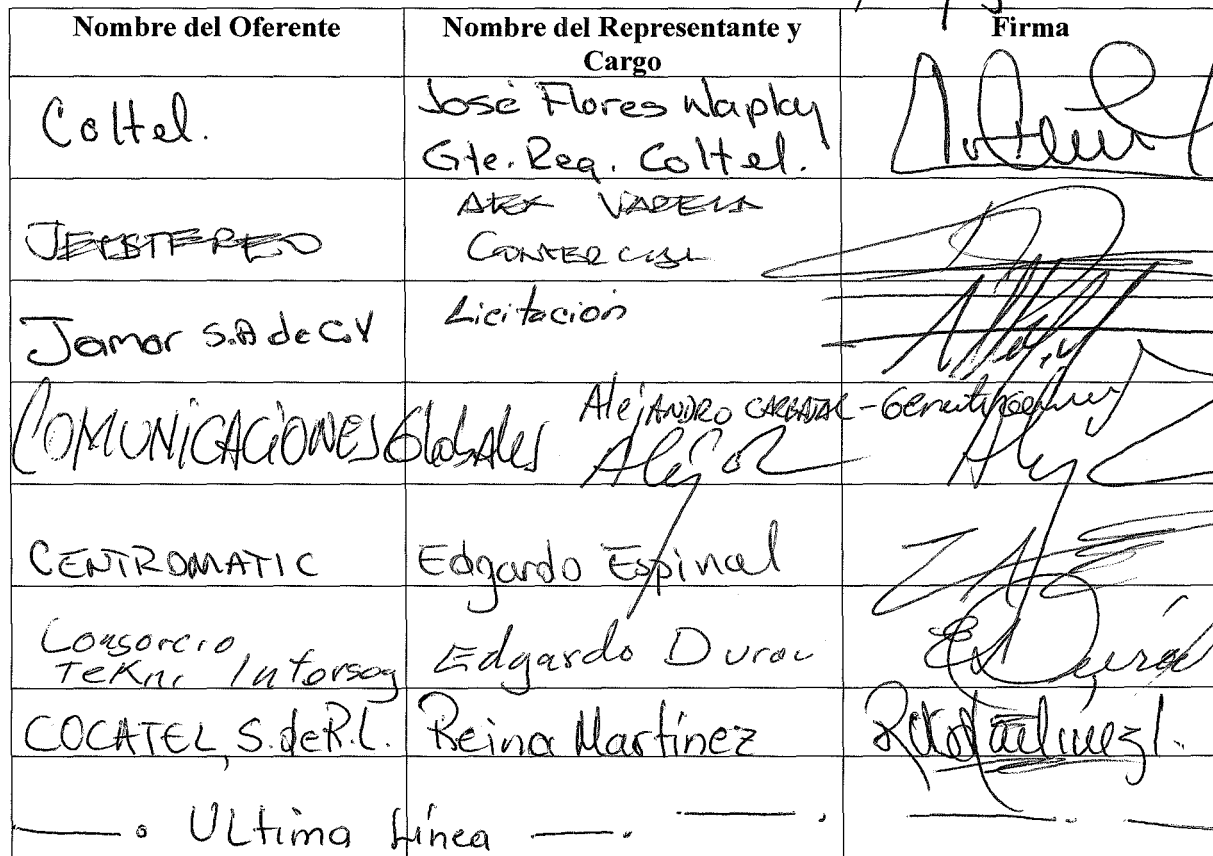 Nombre del Oferente
Nombre del Representante y Cargo
Firma
Coltel.
José Flores
Gte. Reg. Coltel.
Jamar S.A de C.V
Licitación
COMUNICACIONES Globales
Alejandro
CENTROMATIC
Edgardo Espinal
Consorcio
Tekni
Edgardo Duron
COCATEL S. de R.L.
Reina Martínez
Ultima Línea